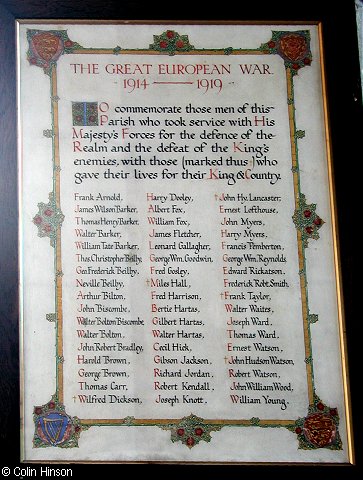 THE GREAT EUROPEAN WAR
1914 — 1919
TO commemorate those men of this
Parish who took service with His
Majesty's Forces for the defence of the
Realm and the defeat of the King's
enemies, with those (marked thus †) who
gave their lives for their King & Country.
Frank Arnold, Harry Dooley, † John Hy. Lancaster,
James Wilson Barker, Albert Fox, Ernest Lofthouse,
Thomas Henry Barker, William Fox, John Myers,
Walter Barker, James Fletcher, Harry Myers,
William Tate Barker, Leonard Gallagher, Francis Pemberton,
Thos. Christopher Beilby, George Wm. Goodwin, George Wm. Reynolds
Geo. Frederick Beilby, Fred Gosley, Edward Rickatson,
Neville Beilby, † Miles Hall, Frederick Robt. Smith,
Arthur Bilton, Fred Harrison, † Frank Taylor,
John Biscombe, Bertie Hartas, Walter Waites,
Walter Bolton Biscombe Gilbert Hartas, Joseph Ward,
Walter Bolton, Walter Hartas, Thomas Ward,
John Robert Bradley, Cecil Hick, Ernest Watson,
Harold Brown, Gibson Jackson, † John Hudson Watson,
George Brown, Richard Jordan, Robert Watson,
Thomas Carr, Robert Kendall, John William Wood,
† Wilfred Dickson, Joseph Knott, William Young.
© Colin Hinson